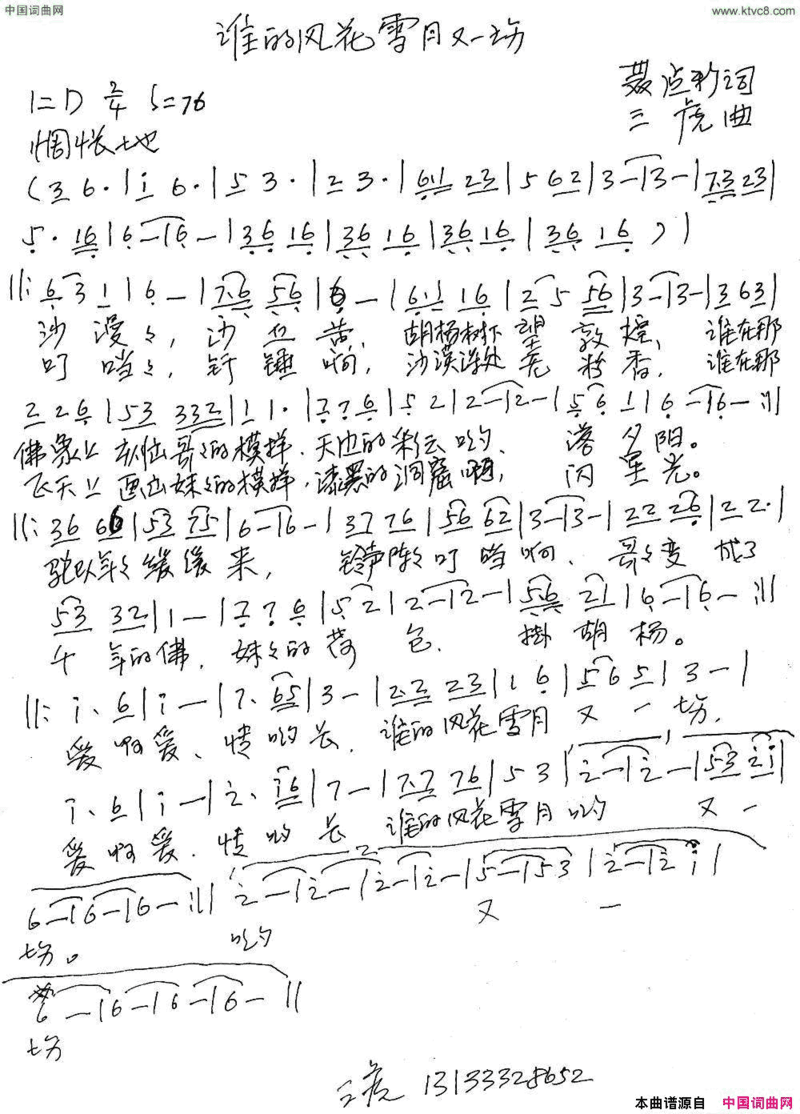 中国词曲网
www.ktvc8.com
谁的风花雪月又一场
1=D 2/4 ♩=76
词
三虎曲
惆怅地
(3 6·|i 6·|5 3·|2 3·|611 23|5 62|3—|3—|7·3 23|
5· 16|6—|6—|36 16|36 16|36 16|36 16)|
||:6 3 1|6—|7·6 56|6—|6·1 16|2 5 56|3—|3—|3 63|
沙漫々,沙土黄,胡杨树下望敦煌,谁在那
叮当々,钎锤响,沙漠深处 香,谁在那
2 26|53 332|1 1·|7 7 6|5 2|2—|2—|5 6 1|6—|6—:||
佛象上 哥々的模样.天边的彩云哟、落夕阳。
飞天上画出妹々的模样,漆黑的洞窟啊,闪星光。
||:36 66|53 75|6—|6—|37 76|56 62|3—|3—|22 26|2 2·|
驼队年々缓缓来,铃声阵々叮当响.哥々变成了
53 32|1—|7 7 6|5 2|2—|2—|56 21|6—|6—:||
千年的佛.妹々的荷包.掛胡杨。
||:i· 6|i—|7· 65|3—|2·2 23|1 6|5 6 5|3—|
爱啊爱、情哟长.谁的风花雪月又一场.
i· 6|i—|2· i6|7—|7·7 76|5 3|2—|2—|53 2i|
爱啊爱.情哟长 谁的风花雪月哟 又一
6—|6—|6—:||2—|2—|2—|2—|5—|5 3|2—|2 i|
场。 哟 又 一
6—|6—|6—|6—||
场
三虎 13133328652
本曲谱源自 中国词曲网